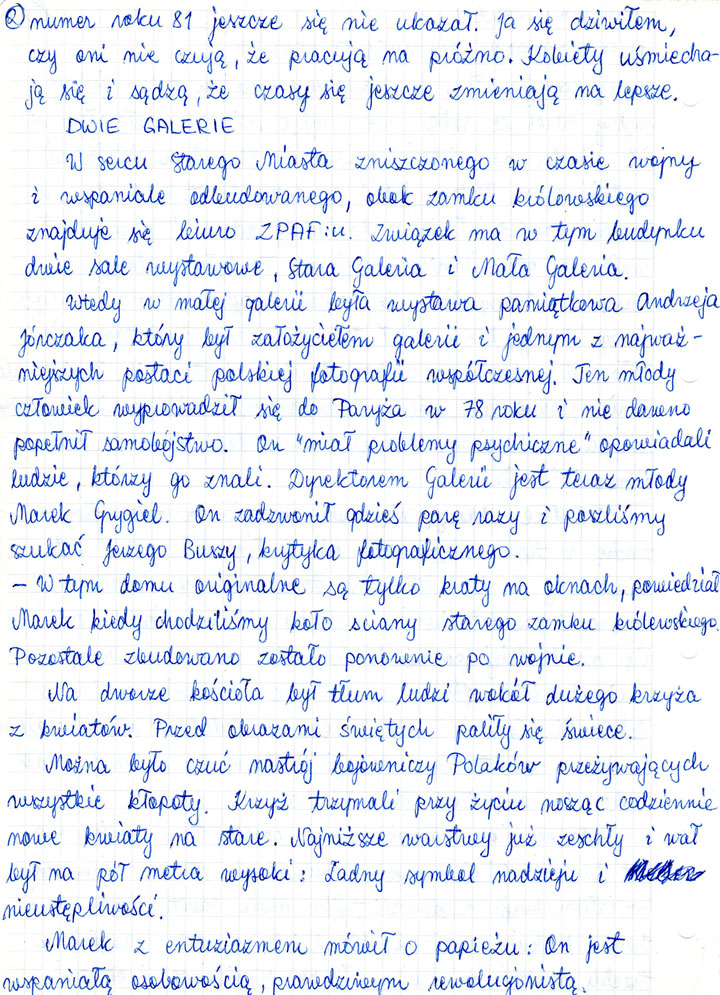 ② numer roku 81 jeszcze się nie ukazał. Ja się dziwiłem,
czy oni nie czują, że pracują na próżno. Kobiety uśmiecha-
ją się i sądzą, że czasy się jeszcze zmieniają na lepsze.
DWIE GALERIE
W sercu Starego Miasta zniszczonego w czasie wojny
i wspaniale odbudowanego, obok zamku królowskiego
znajduje się biuro ZPAF:u. Związek ma w tym budynku
dwie sale wystawowe, Stara Galeria i Mała Galeria.
Wtedy w małej galerii była wystawa pamiątkowa Andrzeja
Jórczaka, który był założycielem galerii i jednym z najważ-
niejszych postaci polskiej fotografii współczesnej. Ten młody
człowiek wyprowadził się do Paryża w 78 roku i nie dawno
popełnił samobójstwo. On "miał problemy psychiczne" opowiadali
ludzie, którzy go znali. Dyrektorem Galerii jest teraz młody
Marek Grygiel. On zadzwonił gdzieś parę razy i poszliśmy
szukać Jerzego Buszy, krytyka fotograficznego.
– W tym domu originalne są tylko kraty na oknach, powiedział
Marek kiedy chodziliśmy koło sciany starego zamku królewskiego.
Pozostałe zbudowano zostało ponownie po wojnie.
Na dworze kościoła był tłum ludzi wokół dużego krzyża
z kwiatów. Przed obrazami świętych paliły się świece.
Można było czuć nastrój bojowniczy Polaków przeżywających
wszystkie kłopoty. Krzyż trzymali przy życiu nosząc codziennie
nowe kwiaty na stare. Najniższe warstwy już zeschły i wał
był na pół metra wysoki: Ładny symbol nadzieji i
nieustępliwości.
Marek z entuziazmem mówił o papieżu: On jest
wspaniałą osobowością, prawdziwym rewolucjonistą.